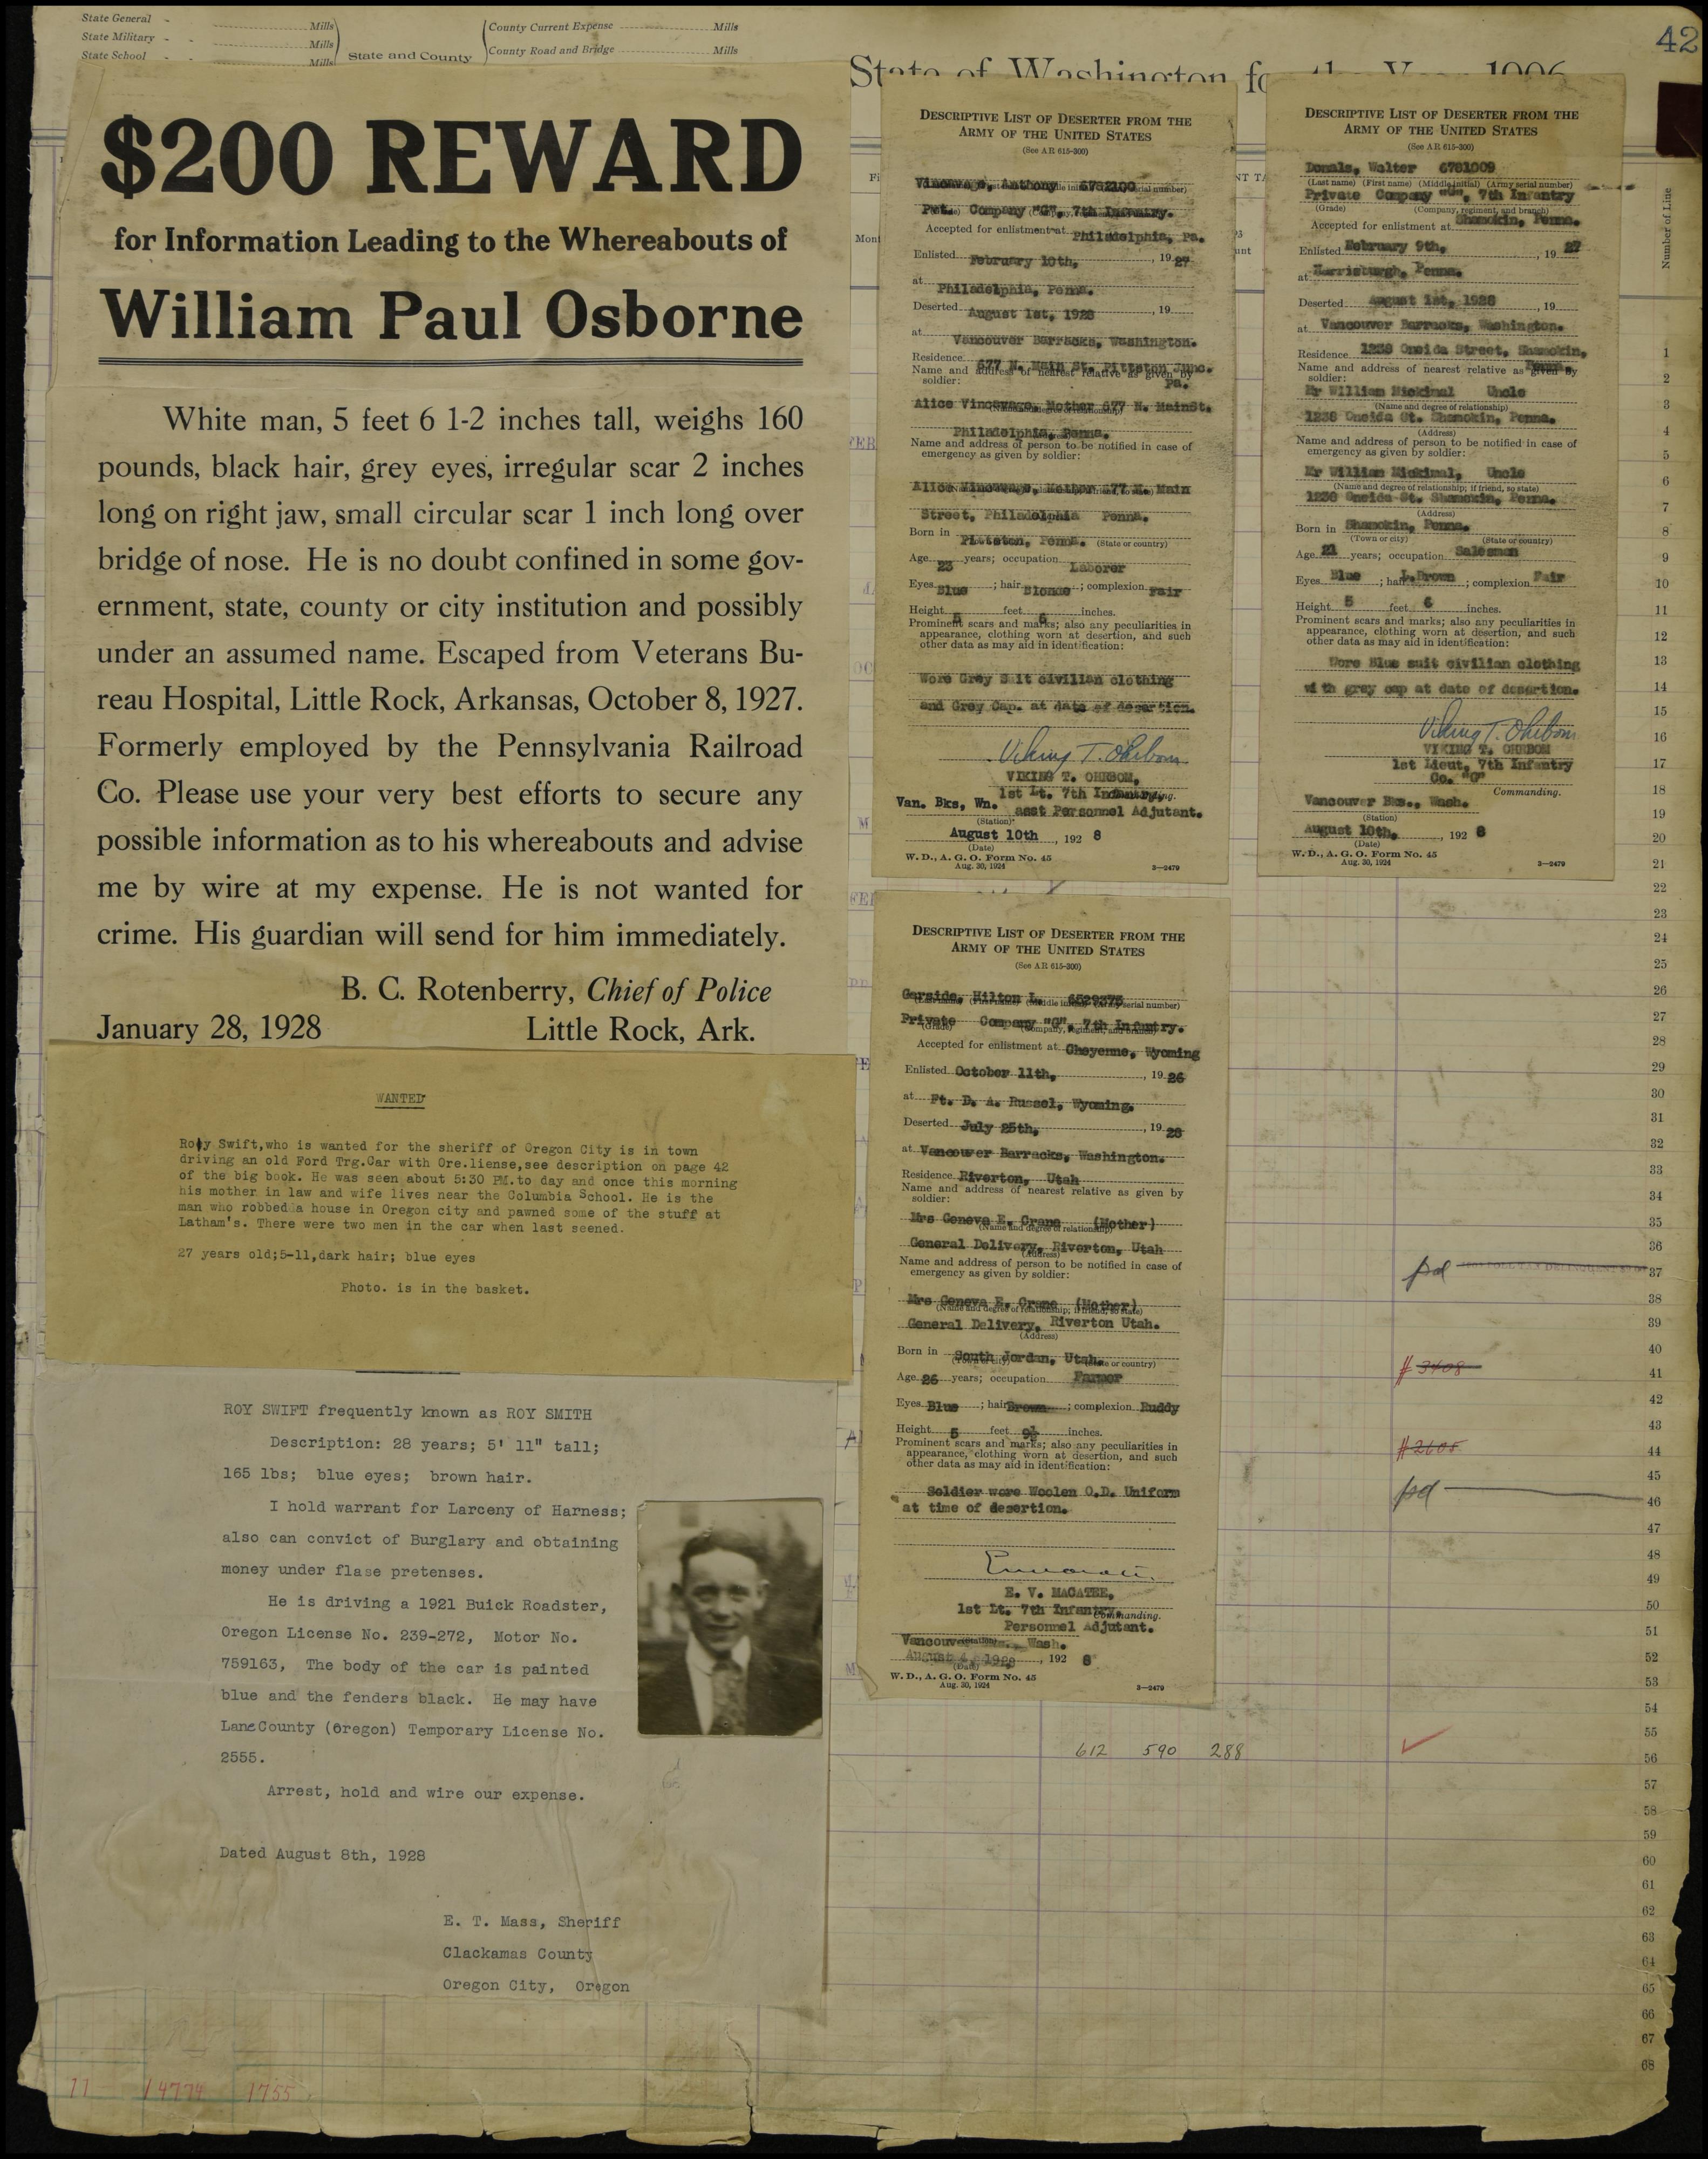 State General - Mills
State Military - - Mills
State School - - Mills
State and County
County Current Expense Mills
County Road and Bridge Mills
42
State of Washington for the Year 1906
$200 REWARD
for Information Leading to the Whereabouts of
William Paul Osborne
White man, 5 feet 6 1-2 inches tall, weighs 160
pounds, black hair, grey eyes, irregular scar 2 inches
long on right jaw, small circular scar 1 inch long over
bridge of nose. He is no doubt confined in some gov-
ernment, state, county or city institution and possibly
under an assumed name. Escaped from Veterans Bu-
reau Hospital, Little Rock, Arkansas, October 8, 1927.
Formerly employed by the Pennsylvania Railroad
Co. Please use your very best efforts to secure any
possible information as to his whereabouts and advise
me by wire at my expense. He is not wanted for
crime. His guardian will send for him immediately.
B. C. Rotenberry, Chief of Police
January 28, 1928 Little Rock, Ark.
WANTED
Roy Swift,who is wanted for the sheriff of Oregon City is in town
driving an old Ford Trg.Car with Ore.liense,see description on page 42
of the big book. He was seen about 5:30 PM.to day and once this morning
his mother in law and wife lives near the Columbia School. He is the
man who robbed a house in Oregon city and pawned some of the stuff at
Latham's. There were two men in the car when last seened.
27 years old;5-11,dark hair; blue eyes
Photo. is in the basket.
ROY SWIFT frequently known as ROY SMITH
Description: 28 years; 5' 11" tall;
165 lbs; blue eyes; brown hair.
I hold warrant for Larceny of Harness;
also can convict of Burglary and obtaining
money under flase pretenses.
He is driving a 1921 Buick Roadster,
Oregon License No. 239-272, Motor No.
759163, The body of the car is painted
blue and the fenders black. He may have
Lane County (Oregon) Temporary License No.
2555.
Arrest, hold and wire our expense.
Dated August 8th, 1928
E. T. Mass, Sheriff
Clackamas County
Oregon City, Oregon
11 14774 1755
DESCRIPTIVE LIST OF DESERTER FROM THE
ARMY OF THE UNITED STATES
(See AR 615-300)
Vincavage, Anthony 6782100
Pvt. Company "G", 7th Infantry.
Accepted for enlistment at Philadelphia, Pa.
Enlisted February 10th, , 19 27
at Philadelphia, Penna.
Deserted August 1st, 1928 , 19
at Vancouver Barracks, Washington.
Residence 677 N. Main St. Pittston Junc.
Pa.
Name and address of nearest relative as given by
soldier:
Alice Vincavage, Mother 677 N. MainSt.
Philadelphia, Penna.
Name and address of person to be notified in case of
emergency as given by soldier:
Alice Vincavage, Mother 677 N. Main
Street, Philadelphia Penna.
Born in Pittston, Penna. (State or country)
Age 23 years; occupation Laborer
Eyes Blue ; hair Blonde ; complexion Fair
Height 5 feet 6 inches.
Prominent scars and marks; also any peculiarities in
appearance, clothing worn at desertion, and such
other data as may aid in identification:
Wore Grey Suit civilian clothing
and Grey Cap. at date of desertion.
Viking T. Ohrbom
VIKING T. OHRBOM,
1st Lt. 7th Infantry,
Van. Bks, Wn. asst Personnel Adjutant.
(Station)
August 10th , 192 8
(Date)
W. D., A. G. O. Form No. 45
Aug. 30, 1924 3—2479
DESCRIPTIVE LIST OF DESERTER FROM THE
ARMY OF THE UNITED STATES
(See AR 615-300)
Domals, Walter 6781009
(Last name) (First name) (Middle initial) (Army serial number)
Private Company "G", 7th Infantry
(Grade) (Company, regiment, and branch)
Accepted for enlistment at Shamokin, Penna.
Enlisted February 9th, , 19 27
at Harrisburgh, Penna.
Deserted August 1st, 1928 , 19
at Vancouver Barracks, Washington.
Residence 1238 Oneida Street, Shamokin,
Penna.
Name and address of nearest relative as given by
soldier:
Mr William Mickimal Uncle
(Name and degree of relationship)
1238 Oneida St. Shamokin, Penna.
(Address)
Name and address of person to be notified in case of
emergency as given by soldier:
Mr William Mickimal, Uncle
(Name and degree of relationship; if friend, so state)
1238 Oneida St. Shamokin, Penna.
(Address)
Born in Shamokin, Penna.
(Town or city) (State or country)
Age 21 years; occupation Salesman
Eyes Blue ; hair L.Brown ; complexion Fair
Height 5 feet 6 inches.
Prominent scars and marks; also any peculiarities in
appearance, clothing worn at desertion, and such
other data as may aid in identification:
Wore Blue suit civilian clothing
with gray cap at date of desertion.
Viking T. Ohrbom
VIKING T. OHRBOM
1st Lieut, 7th Infantry
Co. "G"
Commanding.
Vancouver Bks., Wash.
(Station)
August 10th, , 192 8
(Date)
W. D., A. G. O. Form No. 45
Aug. 30, 1924 3—2479
DESCRIPTIVE LIST OF DESERTER FROM THE
ARMY OF THE UNITED STATES
(See AR 615-300)
Garside, Hilton L. 6529375
Private Company "G", 7th Infantry.
Accepted for enlistment at Cheyenne, Wyoming
Enlisted October 11th, , 19 26
at Ft. D. A. Russel, Wyoming.
Deserted July 25th, , 19 28
at Vancouver Barracks, Washington.
Residence Riverton, Utah
Name and address of nearest relative as given by
soldier:
Mrs Geneva E. Crane (Mother)
(Name and degree of relationship)
General Delivery, Riverton, Utah
(Address)
Name and address of person to be notified in case of
emergency as given by soldier:
Mrs Geneva E. Crane (Mother)
(Name and degree of relationship; if friend, so state)
General Delivery, Riverton Utah.
(Address)
Born in South Jordan, Utah.
Age 26 years; occupation Farmer
Eyes Blue ; hair Brown ; complexion Ruddy
Height 5 feet 9½ inches.
Prominent scars and marks; also any peculiarities in
appearance, clothing worn at desertion, and such
other data as may aid in identification:
Soldier wore Woolen O.D. Uniform
at time of desertion.
E. V. MACATEE,
1st Lt. 7th Infantry
Commanding.
Personnel Adjutant.
Vancouver Wash.
August 4, 1928 , 192 8
(Date)
W. D., A. G. O. Form No. 45
Aug. 30, 1924 3—2479
612 590 288
Number of Line
1
2
3
4
5
6
7
8
9
10
11
12
13
14
15
16
17
18
19
20
21
22
23
24
25
26
27
28
29
30
31
32
33
34
35
36
pd 37
38
39
40
# 3408 41
42
43
# 2605 44
45
pd 46
47
48
49
50
51
52
53
54
55
56
57
58
59
60
61
62
63
64
65
66
67
68